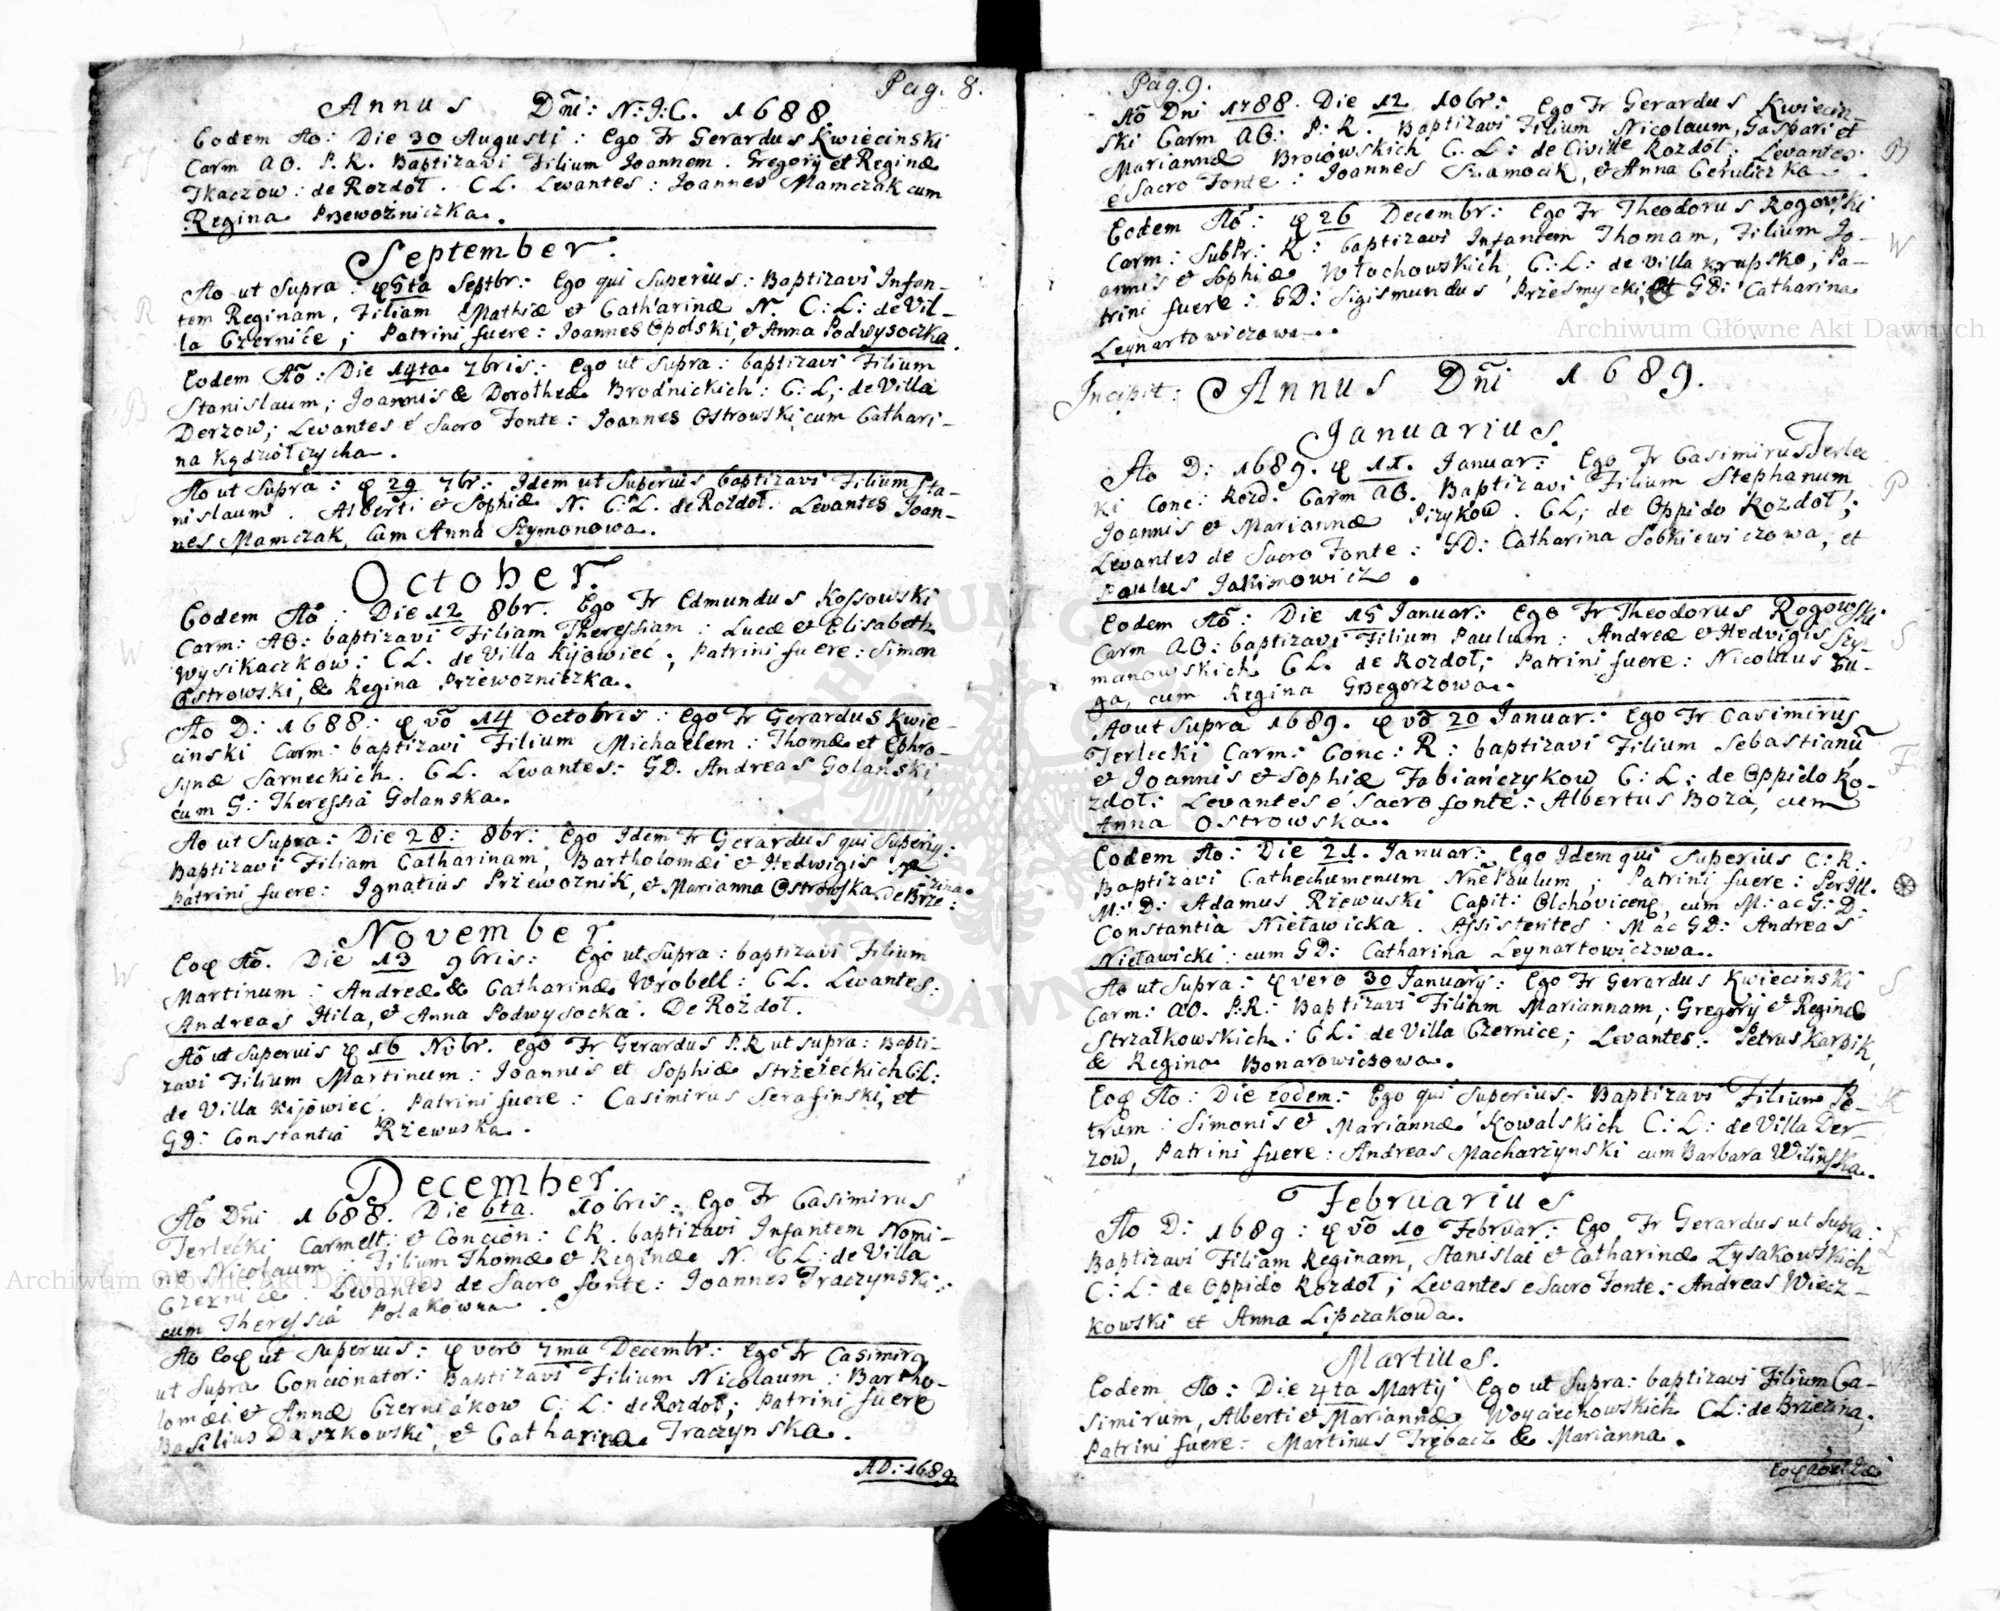 Pag. 8.
Annus Dni: N: J: C. 1688.
Eodem Ao: Die 30 Augusti: Ego Fr Gerardus Kwiecinski
Carm AO. P. R. Baptizavi Filium Joannem. Gregorij et Reginæ
Tkaczow: de Rozdoł. CL. Levantes: Joannes Mamczak cum
Regina Przewozniczka.
September.
Ao ut Supra: 5ta Septbr: Ego qui Superius: Baptizavi Infan-
tem Reginam, Filiam Mathiæ et Catharinæ N. C: L: de Vil-
la Czernice; Patrini fuere: Joannes Opolski, et Anna Podwysoczka.
Eodem Ao: Die 14ta 7bris: Ego ut Supra: baptizavi Filium
Stanislaum; Joannis & Dorotheæ Brodnickich: C: L; de Villa
Derzow; Levantes é Sacro Fonte: Joannes Ostrowski, cum Cathari-
na
Ao ut Supra: 29 7br: Idem ut Superius baptizavi Filium Sta-
nislaum. Alberti et Sophiæ N. C: L. de Rozdoł. Levantes Joan-
nes Mamczak, cum Anna Szymonowa.
October.
Eodem Ao: Die 12 8br. Ego Fr Edmundus Kossowski
Carm: AO: baptizavi Filiam Theressiam: Lucæ et Elisabeth
Wysikaczkow: CL. de Villa Kijowiec; Patrini fuere: Simon
Ostrowski, & Regina Przewozniczka.
Ao D: 1688: vo 14 Octobris: Ego Fr Gerardus Kwie-
cinski Carm: baptizavi Filium Michaelem: Thomæ et Ephro-
synæ Sarneckich. CL. Levantes: GD. Andreas Golanski,
cum G: Theressia Golanska.
Ao ut Supra: Die 28: 8br: Ego Idem Fr Gerardus qui Superiy:
Baptizavi Filiam Catharinam, Bartholomæi et Hedwigis
Patrini fuere: Ignatius Przewoznik, et Marianna Ostrowska. de Brze:
zina.
November.
Eoq Ao. Die 13 9bris: Ego ut Supra: baptizavi Filium
Martinum: Andreæ & Catharinæ Wrobell: CL. Levantes:
Andreas Hila, et Anna Podwysocka. De Rozdoł.
Ao ut Superuis 16 Nobr. Ego Fr Gerardus P. R ut supra: Bapti-
zavi Filium Martinum: Joannis et Sophiæ Strzezeckich CL:
de Villa Kijowiec. Patrini fuere: Casimirus Serafinski, et
GD: Constantia Rzewuska.
December.
Ao Dni 1688. Die 6ta 10bris: Ego Fr Casimirus
Terlecki, Carmelt: et Concion: C R. baptizavi Infantem Nomi-
ne Nicolaum: Filium Thomæ et Reginæ N. CL: de Villa
Czernice. Levantes de Sacro fonte: Joannes Traczynski:
cum Theressia Polakowna.
Ao Eoq ut Superius: vero 7ma Decembr: Ego Fr Casimirq
ut Supra Concionator: Baptizavi Filium Nicolaum: Bartho-
lomæi et Annæ Czerniakow C: L: de Rozdoł; Patrini fuere
Basilius Daszkowski, et Catharina Traczynska.
AD: 1689
Pag. 9.
Ao Dni 1788. Die 12 10br: Ego Fr Gerardus Kwiecin-
ski Carm AO: P: R. Baptizavi Filium Nicolaum, Gaspari et
Mariannæ Broiowskich C. L: de Civitte Rozdoł; Levantes
é Sacro Fonte: Joannes Szamocik, et Anna Ceruliczka.
Eodem Ao: 26 Decembr: Ego Fr Theodorus Rogowski
Carm: SubPr: R: baptizavi Infantem Thomam, Filium Jo-
annis et Sophiæ Włochowskich C: L: de villa Krupsko, Pa-
trini fuere: GD: Sigismundus Przesmycki, et GD: Catharina
Leynartowiczowa.
Incipit: Annus Dni 1689.
Januarius.
Ao D: 1689. 11. Januar: Ego Fr Casimirus Terlec
ki Conc: Rozd. Carm AO. Baptizavi Filium Stephanum
Joannis et Mariannæ Pizykow. CL; de Oppido Rozdoł;
Levantes de Sacro Fonte: GD: Catharina Sobkiewiczowa, et
Paulus Jakimowicz.
Eodem Ao: Die 15 Januar: Ego Fr Theodorus Rogowski
Carm AO: baptizavi Filium Paulum: Andreæ et Hedvigis Szy-
manowskich CL. de Rozdoł; Patrini fuere: Nicolaus Bu-
ga, cum Regina Grzegorzowa.
Ao ut Supra 1689. vo 20 Januar: Ego Fr Casimirus
Terlecki Carm: Conc: R: baptizavi Filium Sebastianu
et Joannis et Sophiæ Fabianczykow C: L: de Oppido Ro-
zdoł: Levantes é Sacro fonte: Albertus Boza, cum
Anna Ostrowska.
Eodem Ao: Die 21. Januar: Ego Idem qui Superius C: R:
Baptizavi Cathechumenum Nne Paulum; Patrini fuere: Per Ill.
M: D: Adamus Rzewuski Capit: Olchovicenq, cum M: ac G: D:
Constantia Nieławicka. Assistentes: M ac GD: Andreas
Nieławicki: cum GD: Catharina Leynartowiczowa.
Ao ut Supra: vero 30 January: Ego Fr Gerardus Kwiecinski
Carm: AO. P.R: Baptizavi Filiam Mariannam; Gregorij et Reginæ
Strzałkowskich: CL: de Villa Czernice; Levantes: Petrus Karpik,
& Regina Bonarowiczowa.
Eoq Ao: Die eodem: Ego qui Superius: Baptizavi Filium Pe-
trum: Simonis et Mariannæ Kowalskich C: L: de Villa Der-
zow, Patrini fuere: Andreas Macharzynski cum Barbara Wilinska.
Februarius
Ao D: 1689: vo 10 Februar: Ego Fr Gerardus ut Supra:
Baptizavi Filiam Reginam, Stanislai et Catharinæ Łysakowskich
C: L: de Oppido Rozdoł; Levantes e Sacro Fonte: Andreas Wiecz-
kowski et Anna Lipczakowa.
Martius.
Eodem Ao: Die 4ta Martij Ego ut Supra: baptizavi Filium Ca-
simirum, Alberti et Mariannæ Woyciechowskich CL: de Brzezina,
Patrini fuere: Martinus Trębacz & Marianna.
Archiwum Główne Akt Dawnych
Archiwum Główne Akt Dawnych